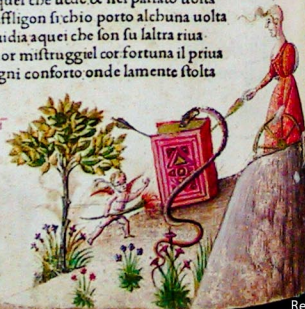 che uede & nel passato uolta
ffligon sichio porto alchuna uolta
uidia aquei che son su laltra riua
or mistruggiel cor fortuna il priua
gni conforto onde lamente stolta
Re